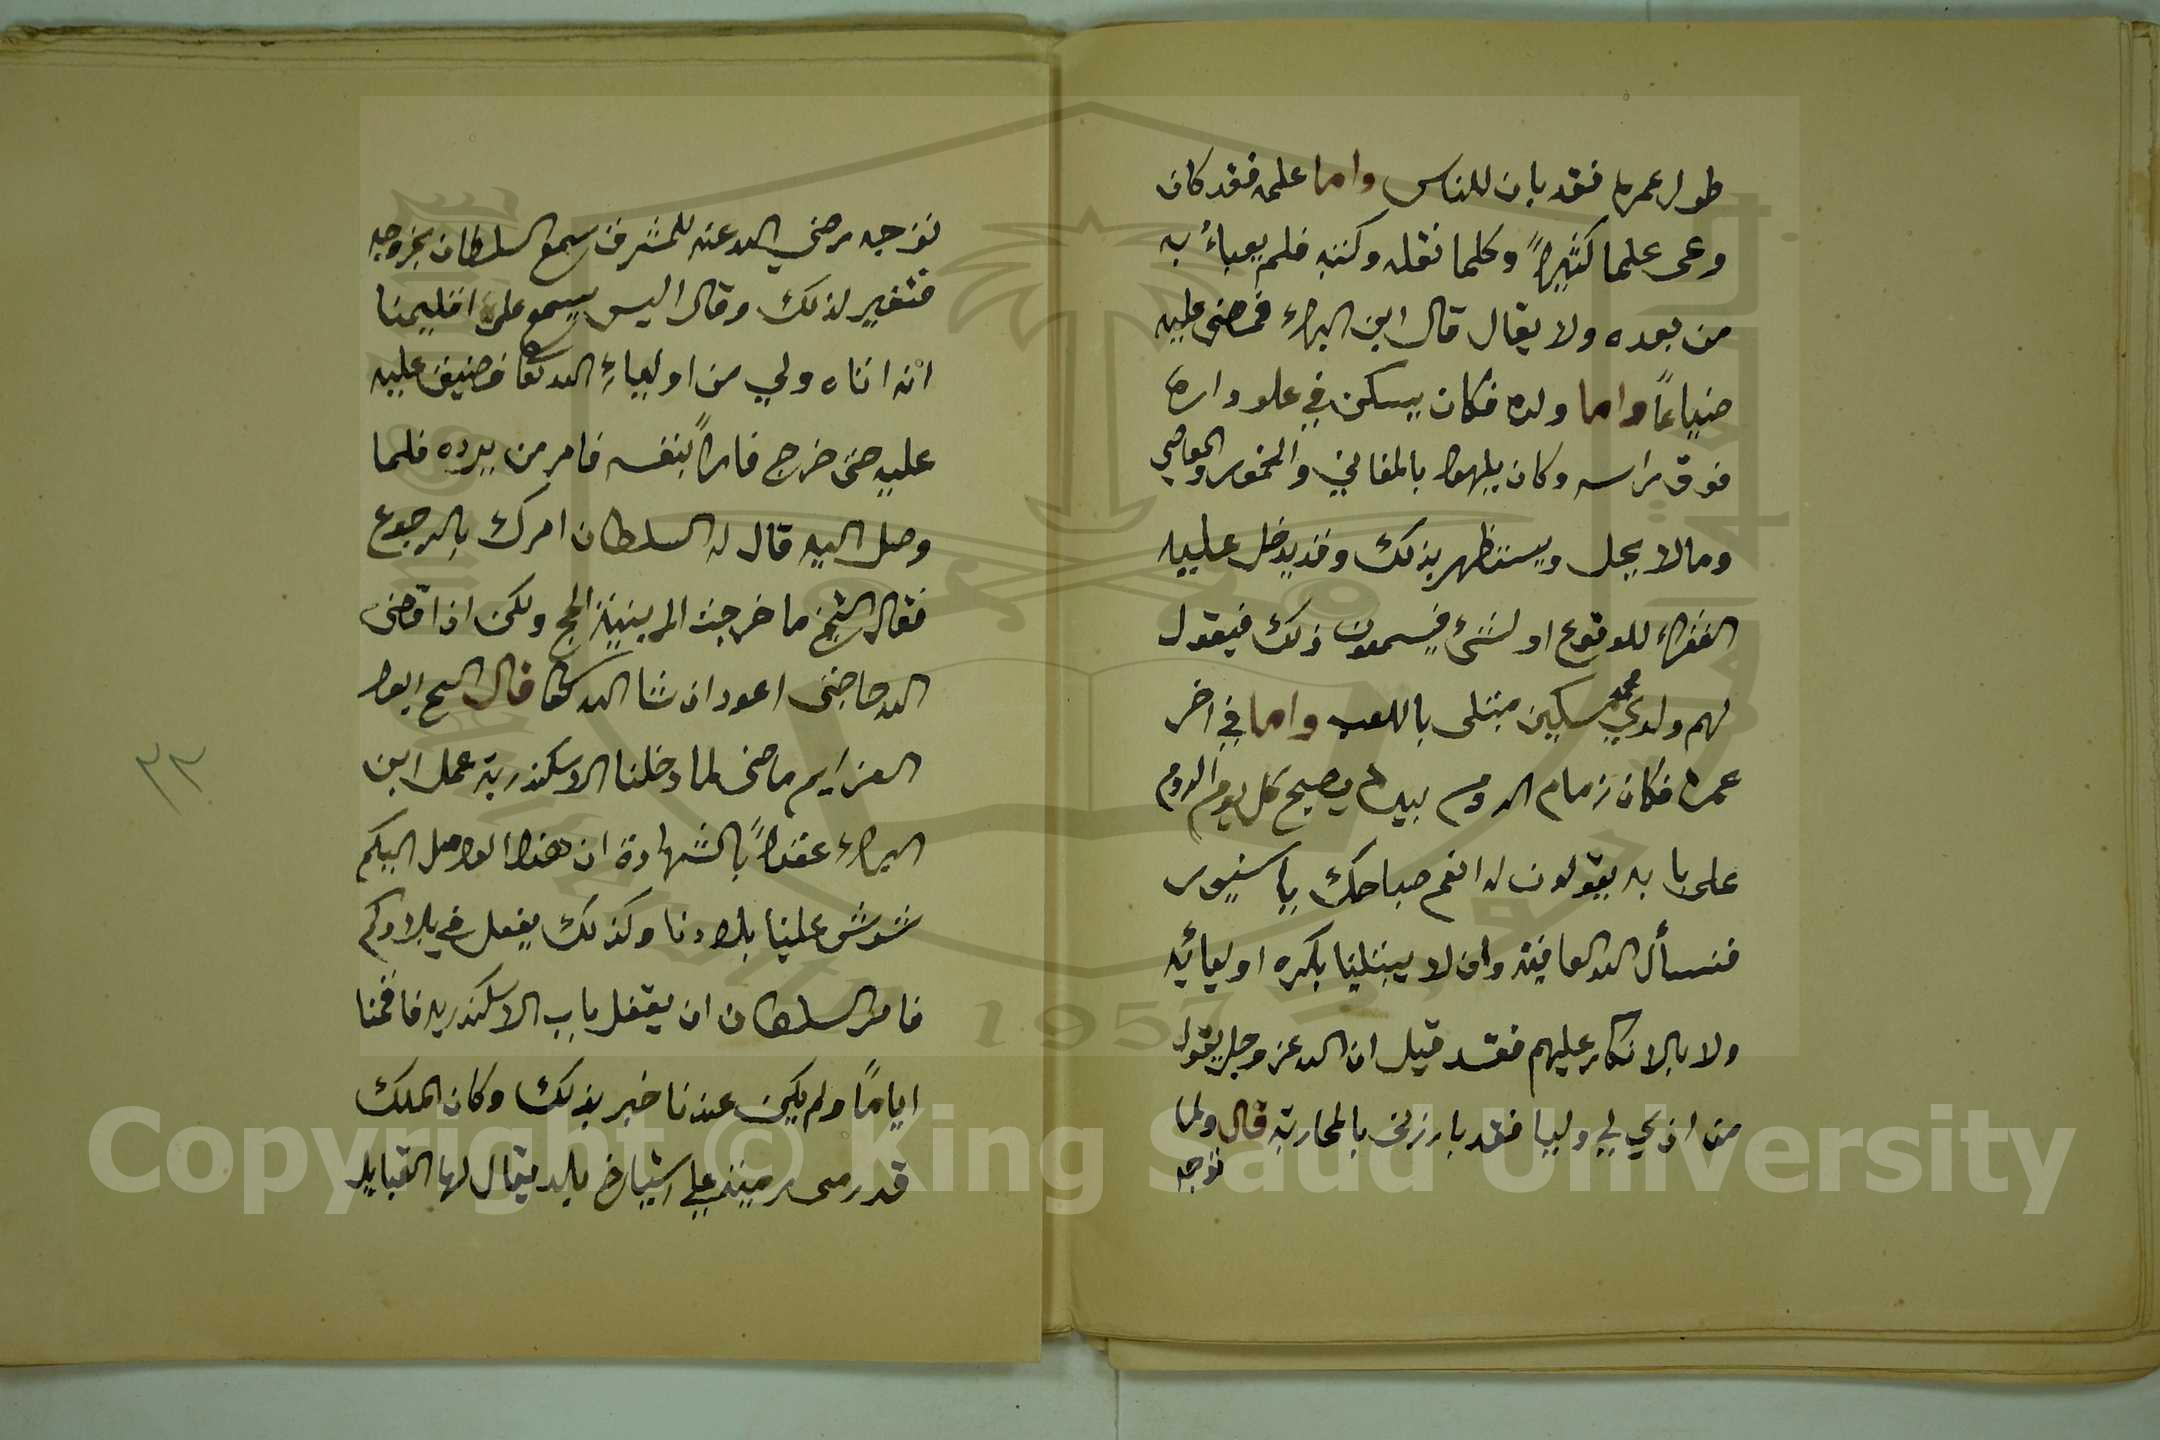 طول عمره فقد بان للناس واما علمه فقد كان
وعى علما كثيراً وكلما نقله وكتبه فلم يعباء به
من بعده ولا يقال قال ابن البراء فمضى عليه
ضياعاً واما ولده فكان يسكن في علو داره
فوق راسه وكان يلهوا بالمغاني والخمور والمعاصي
ومالا يحل ويستظهر بذلك وقد يدخل عليه
الفقراء للوقوع او لشئ فيسمعون ذلك فيقول
لهم ولدي محمد مسكين مبتلى باللعب واما في اخر
عمره فكان زمام الروم بيده يصبح كل يوم الروم
على بابه يقولون له انعم صباحك يا سنيور
فنسأل الله العافية وان لا يبتلينا بكره اوليائه
ولا بالانكار عليهم فقد قيل ان الله عز وجل يقول
من اذي لي وليا فقد بارزني بالمحاربة قال ولما
توجه
توجه رضي الله عنه للمشرق سمع السلطان بخروجه
فتغير لذلك وقال اليس يسمع على اقليمنا
انه اتاه ولي من اولياء الله تعا فضيق عليه
عليه حتى خرج فاراً بنفسه فامر من يرده فلما
وصل اليه قال له السلطان امرك بالرجوع
فقال الشيخ ما خرجت الا بنية الحج ولكن اذا قضى
الله حاجتي اعود ان شا الله تعا قال الشيخ ابوا
العزايم ماضى لما دخلنا الاسكندرية عمل ابن
البراء عقداً بالشهادة ان هذا الواصل اليكم
شوش علينا بلادنا وكذلك يفعل في بلادكم
فامر السلطان ان يقفل باب الاسكندريه فاقمنا
اياماً ولم يكن عندنا خبر بذلك وكان الملك
قد رمى رمية على اشياخ بلد يقال لها القبايل
٣٣
Copyright © King Saud University
1957